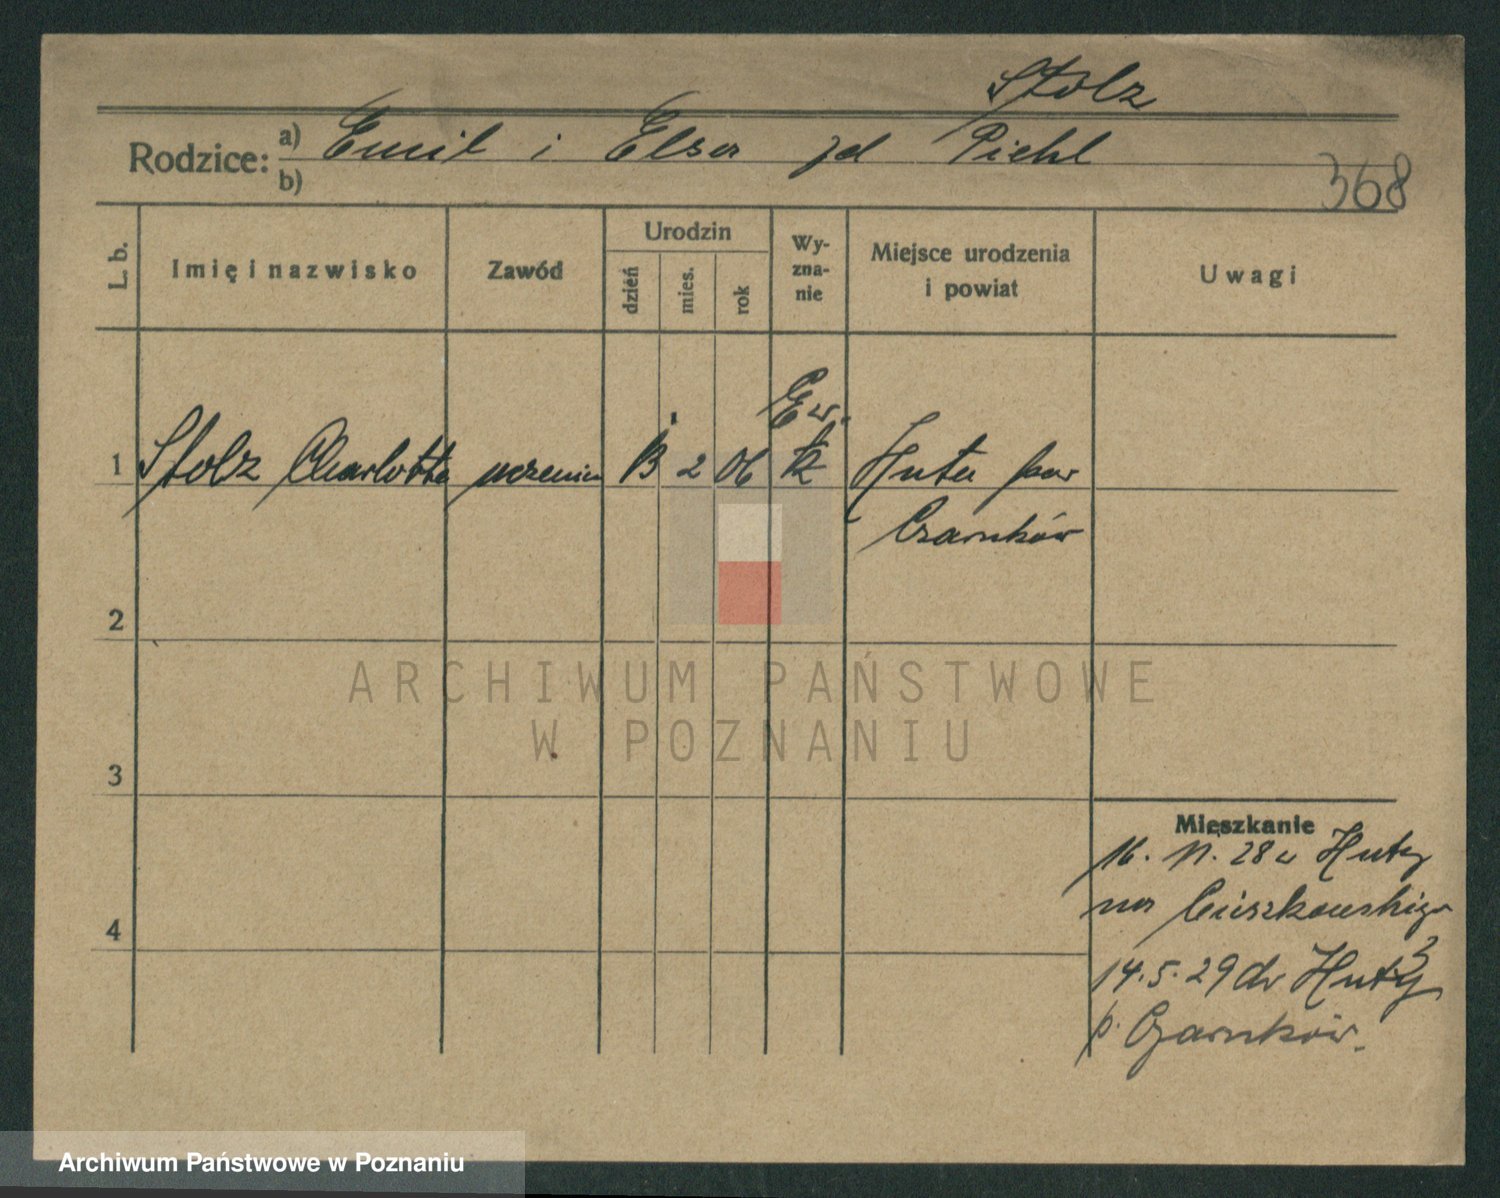 Stolz
Rodzice: a) Emil i Elsa zd Piehl
b)
368
L. b.
Imię i nazwisko
Zawód
Urodzin
dzień
mies.
rok
Wy-
zna-
nie
Miejsce urodzenia
i powiat
Uwagi
Ew.
1 Stolz Charlotte uczenica 13 2 06 Huta pow
Czarnków
2
ARCHIWUM PAŃSTWOWE
W POZNANIU
3
Mieszkanie
16. 11. 28 z Huty
na Cieszkowskiego
3
14.5.29 do Huty
p. Czarnków.
4
Archiwum Państwowe w Poznaniu